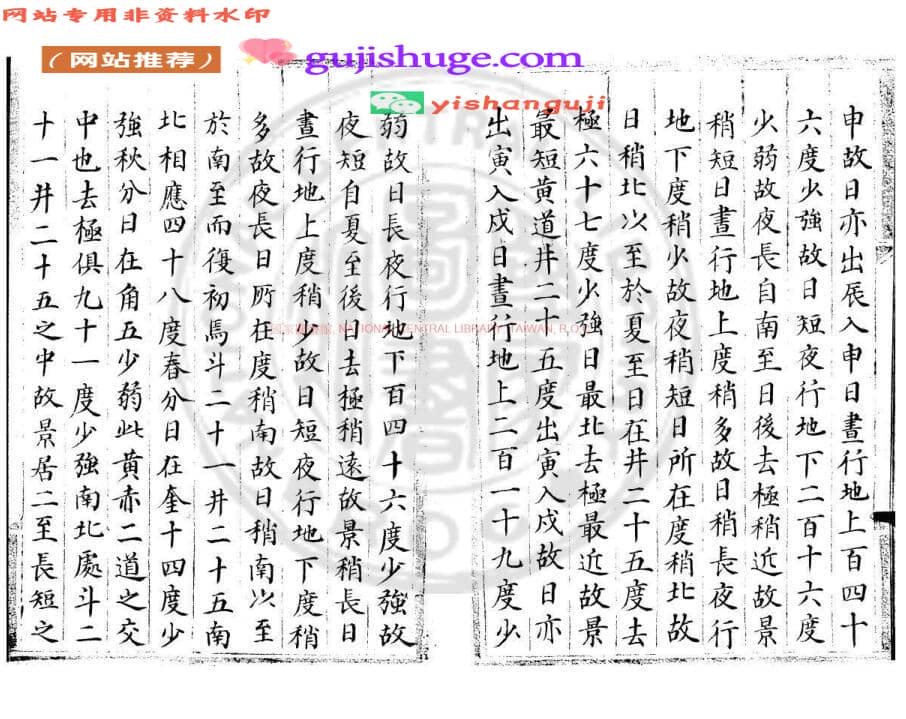 网站专用非资料水印
（网站推荐）
gujishuge.com
yishanguji
申故日亦出辰入申日晝行地上百四十
六度少強故日短夜行地下二百十六度
少弱故夜長自南至日後去極稍近故景
稍短日晝行地上度稍多故日稍長夜行
地下度稍少故夜稍短日所在度稍北故
日稍北以至於夏至日在井二十五度去
極六十七度少強日最北去極最近故景
最短黃道井二十五度出寅入戍故日亦
出寅入戍日晝行地上二百一十九度少
弱故日長夜行地下百四十六度少強故
夜短自夏至後日去極稍遠故景稍長日
晝行地上度稍少故日短夜行地下度稍
多故夜長日所在度稍南故日稍南以至
於南至而復初焉斗二十一井二十五南
北相應四十八度春分日在奎十四度少
強秋分日在角五少弱此黃赤二道之交
中也去極俱九十一度少強南北處斗二
十一井二十五之中故景居二至長短之
國家圖書館, NATIONAL CENTRAL LIBRARY, TAIWAN, R.O.C